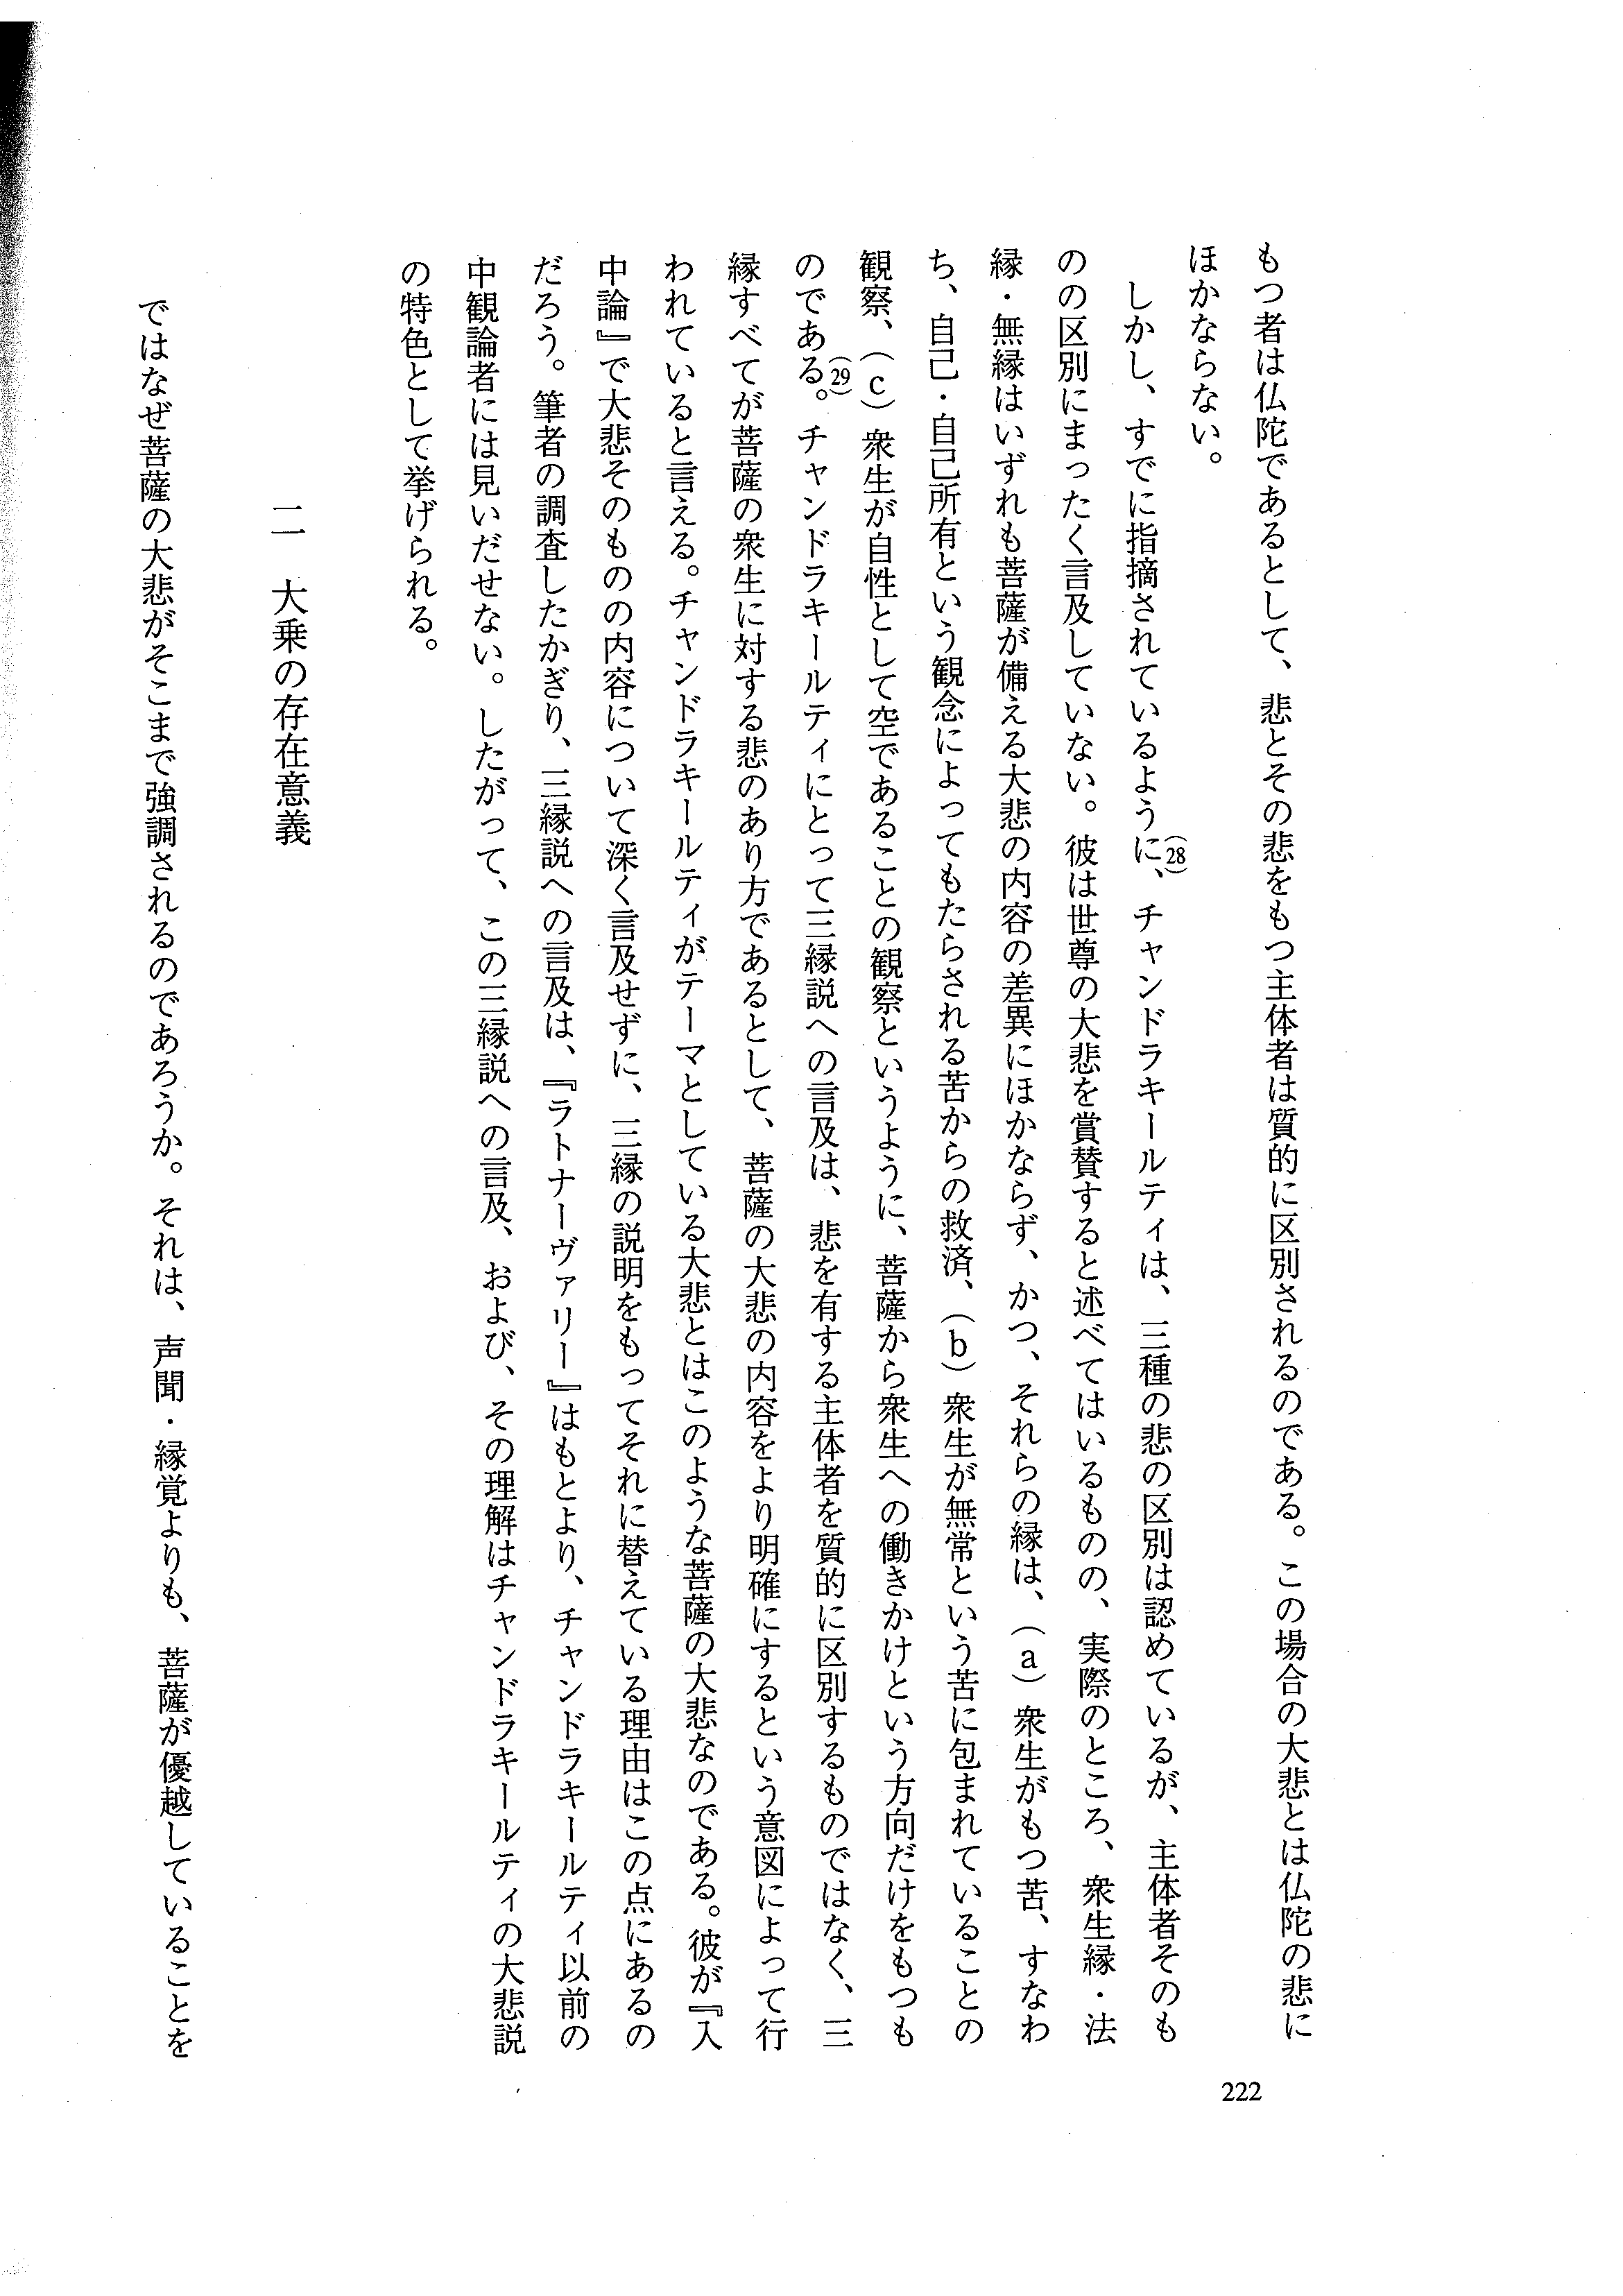 もつ者は仏陀であるとして、悲とその悲をもつ主体者は質的に区別されるのである。この場合の大悲とは仏陀の悲に
ほかならない。
しかし、すでに指摘されているように(28)、チャンドラキールティは、三種の悲の区別は認めているが、主体者そのも
のの区別にまったく言及していない。彼は世尊の大悲を賞賛すると述べてはいるものの、実際のところ、衆生縁・法
縁・無縁はいずれも菩薩が備える大悲の内容の差異にほかならず、かつ、それらの縁は、(a)衆生がもつ苦、すなわ
ち、自己・自己所有という観念によってもたらされる苦からの救済、(b)衆生が無常という苦に包まれていることの
観察、(c)衆生が自性として空であることの観察というように、菩薩から衆生への働きかけという方向だけをもつも
のである(29)。チャンドラキールティにとって三縁説への言及は、悲を有する主体者を質的に区別するものではなく、三
縁すべてが菩薩の衆生に対する悲のあり方であるとして、菩薩の大悲の内容をより明確にするという意図によって行
われていると言える。チャンドラキールティがテーマとしている大悲とはこのような菩薩の大悲なのである。彼が『入
中論』で大悲そのものの内容について深く言及せずに、三縁の説明をもってそれに替えている理由はこの点にあるの
だろう。筆者の調査したかぎり、三縁説への言及は、『ラトナーヴァリー』はもとより、チャンドラキールティ以前の
中観論者には見いだせない。したがって、この三縁説への言及、および、その理解はチャンドラキールティの大悲説
の特色として挙げられる。
二　大乗の存在意義
ではなぜ菩薩の大悲がそこまで強調されるのであろうか。それは、声聞・縁覚よりも、菩薩が優越していることを
222